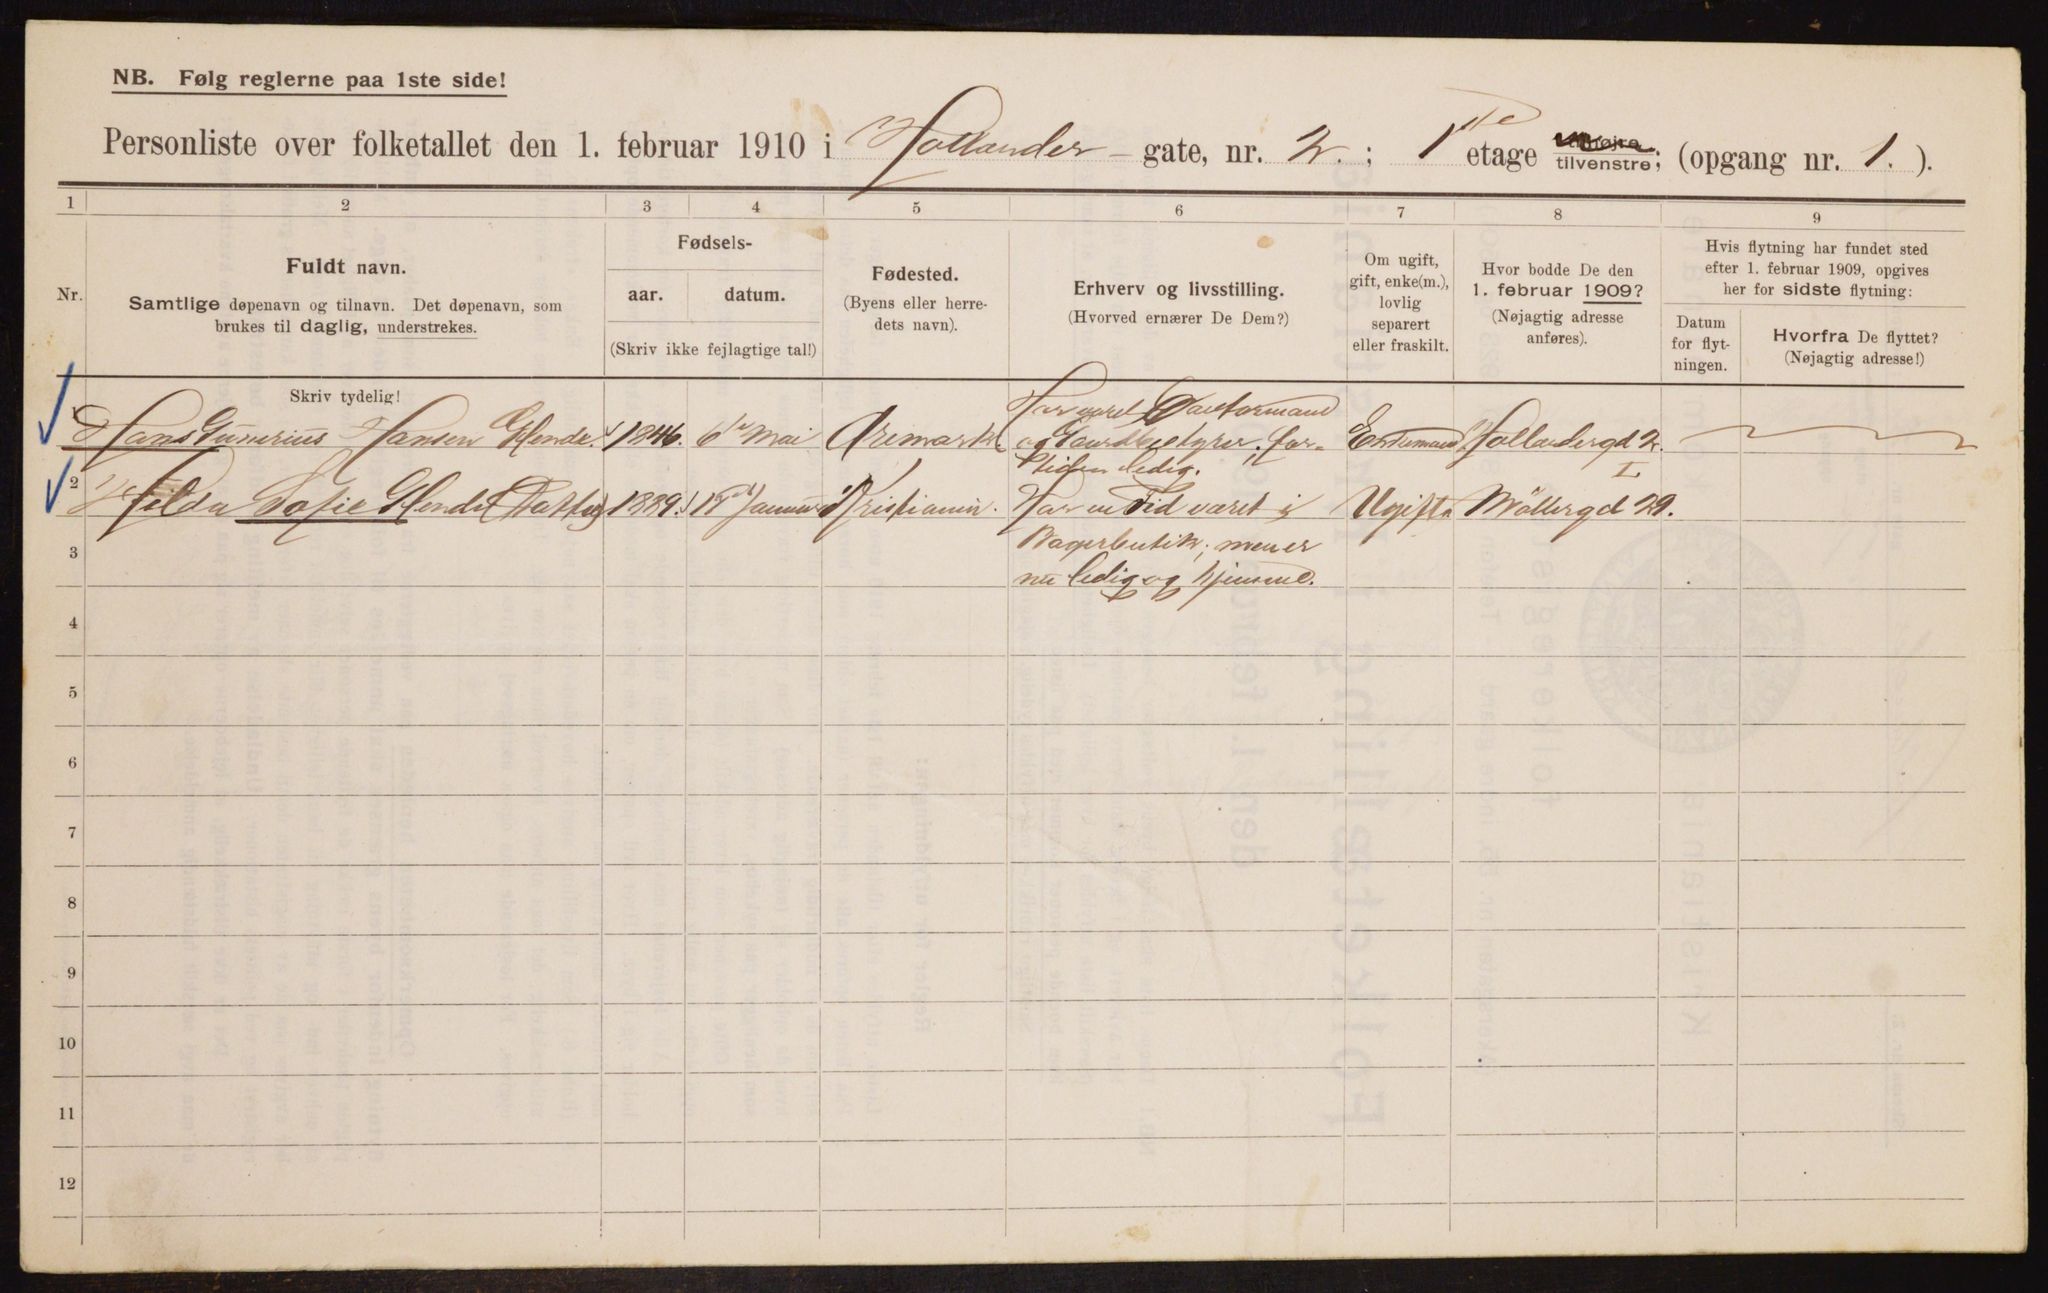 NB. Følg reglerne paa 1ste side!
Personliste over folketallet den 1. februar 1910 i Hollander- gate, nr. 2.; 1ste etage tilvenstre; (opgang nr. 1.).
1 2 3 4 5 6 7 8 9
Nr.
Fuldt navn.
Samtlige døpenavn og tilnavn. Det døpenavn, som
brukes til daglig, understrekes.
Skriv tydelig!
Fødsels-
aar. datum.
(Skriv ikke fejlagtige tal!)
Fødested.
(Byens eller herre-
dets navn).
Erhverv og livsstilling.
(Hvorved ernærer De Dem?)
Om ugift,
gift, enke(m.),
lovlig
separert
eller fraskilt.
Hvor bodde De den
1. februar 1909?
(Nøjagtig adresse
anføres).
Hvis flytning har fundet sted
efter 1. februar 1909, opgives
her for sidste flytning:
Datum
for flyt-
ningen.
Hvorfra De flyttet?
(Nøjagtig adresse!)
1 Hans Gunerius Hansen Glende. 1846. 6te Mai Aremark Har været
og Gaardbestyrer, for- Enkemand Hollendergd 2.
tiden ledig. I.
2 Helda Sofie Glende (Datter) 1889. Januar Kristiania. Har en Tid været i Ugift Møllergd 29.
3 Bagerbutik; men er
nu ledig og hjemme.
4
5
6
7
8
9
10
11
12